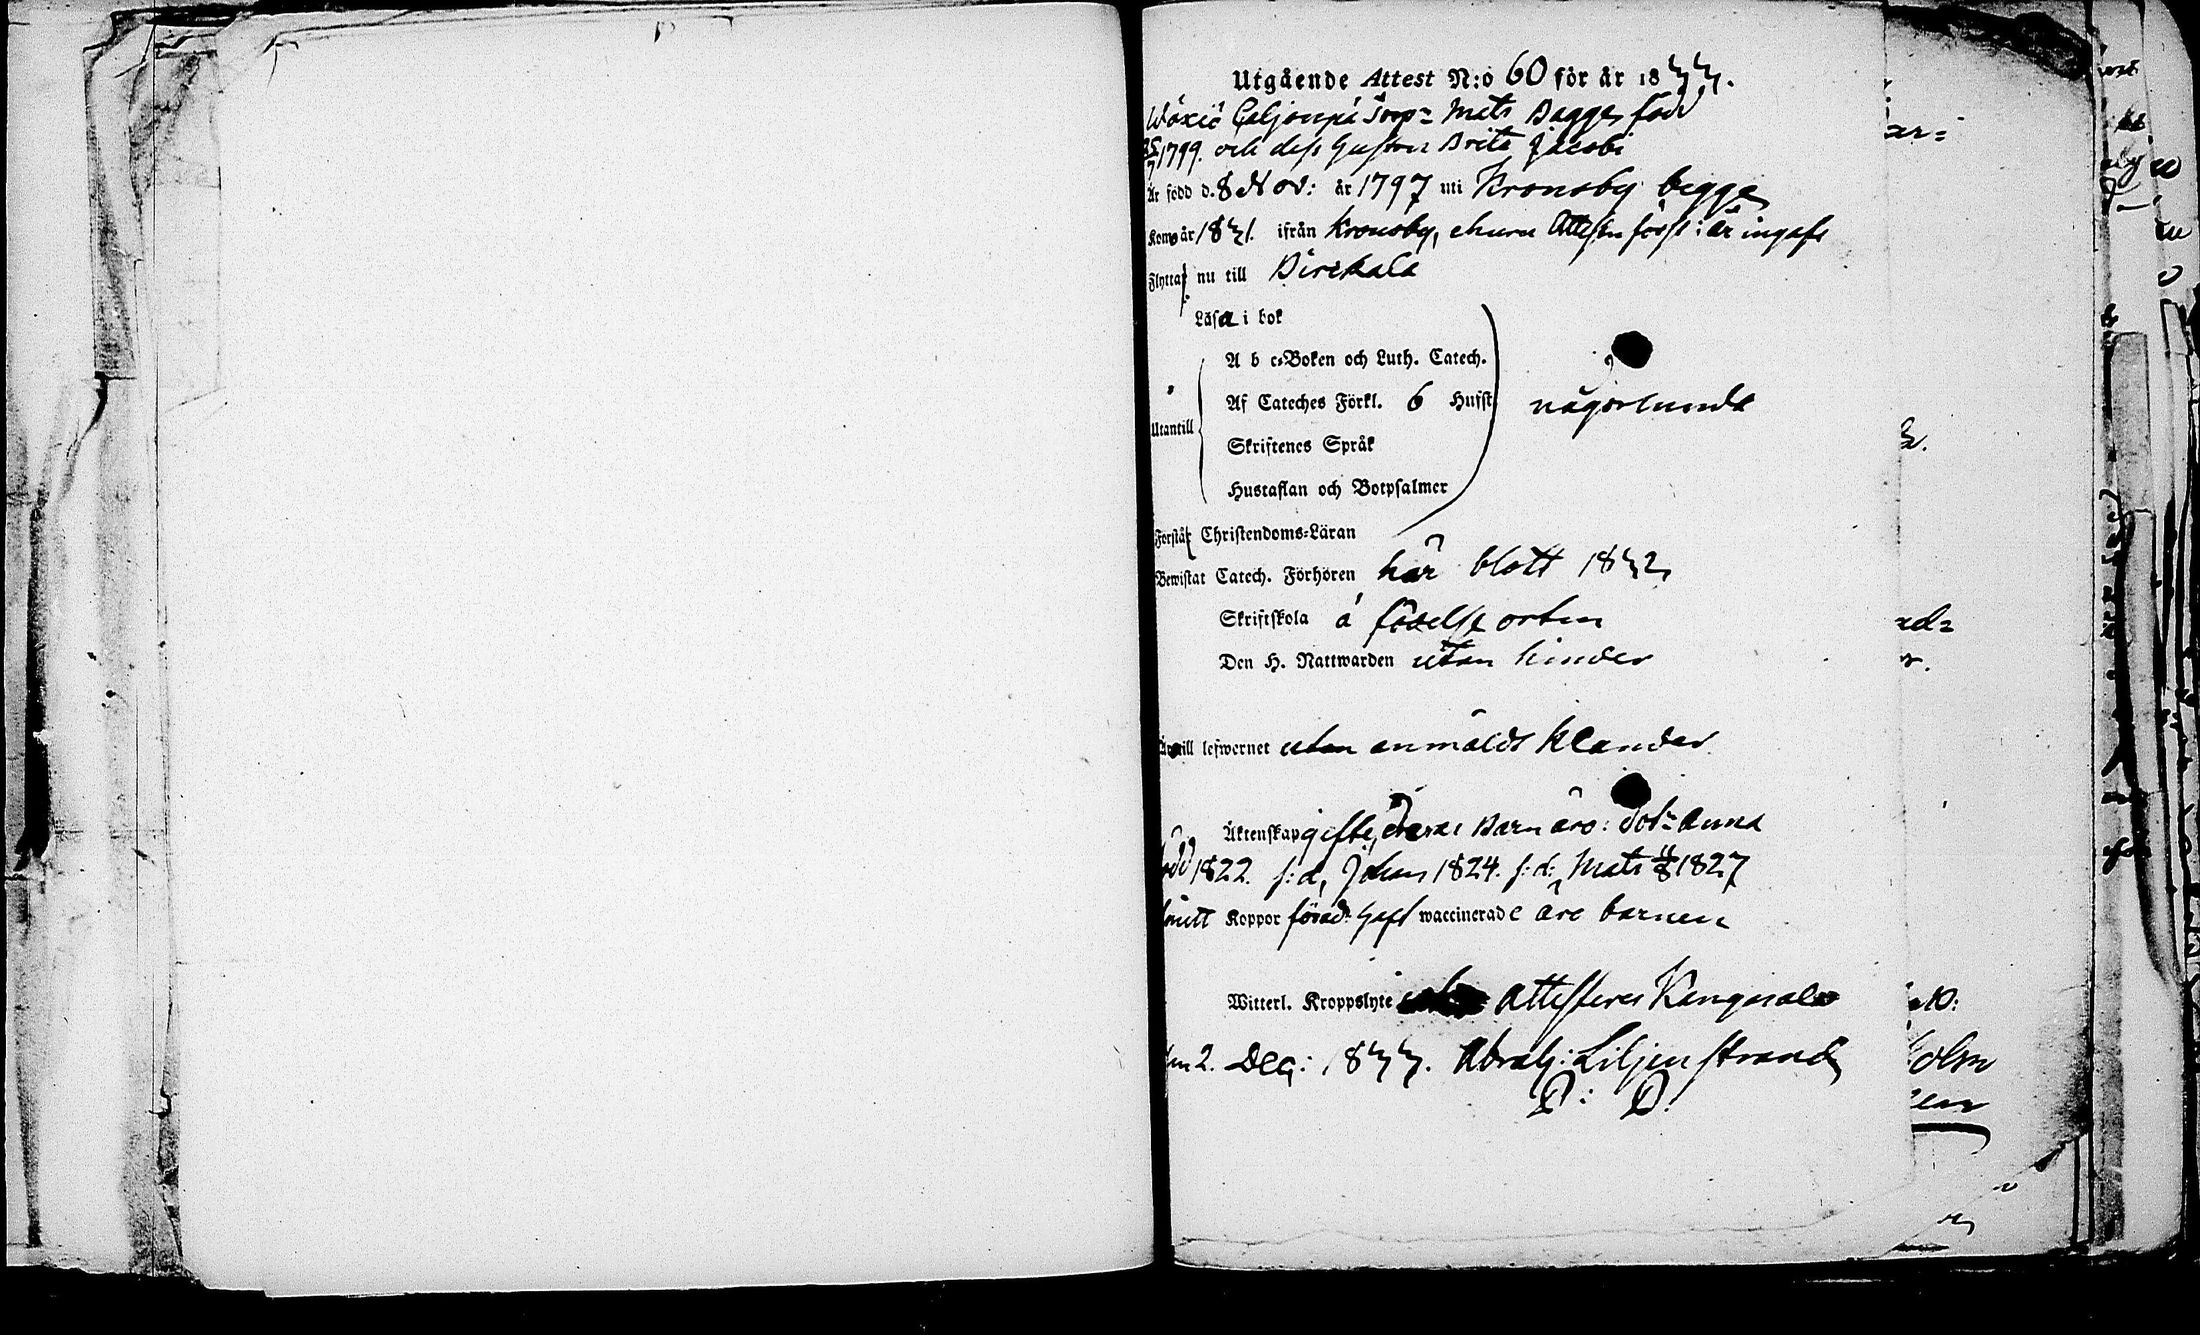 Utgående Attest N:o 60 för år 1833.
Wäxiö Torp= Mats Bagge, född
25/7 1799. och dess hustru Brita Jacobi
är född d. 8 Nov: år 1797 uti Kronoby begge
Kom år 1831. ifrån Kronoby, ehuru först i år ingafs
Flytta nu till Birckala
Läsa i bok
A b c=Boken och Luth. Catech.
Af Cateches Förkl. 6 Hufst någorlunda
Utantill
Skriftenes Språk
Hustaflan och Botpsalmer
Förstå Christendoms=Läran
Bewistat Catech. Förhören här blott 1832,
Skriftskola å födelse orten
Den H. Nattwarden utan hinder
Är till lefwernet utan anmäldt klander
Äktenskap gifte, deras Barn äro: dot= Anna
född 1822. s:d, Johan 1824. s:d: Mats 11/8 1827
Koppor föräd: haft waccinerade äre barnen
Witterl. Kroppslyte Attesteras Kangasala
den 2. Dec: 1833. Abrah: Liljenstrand
P: P.